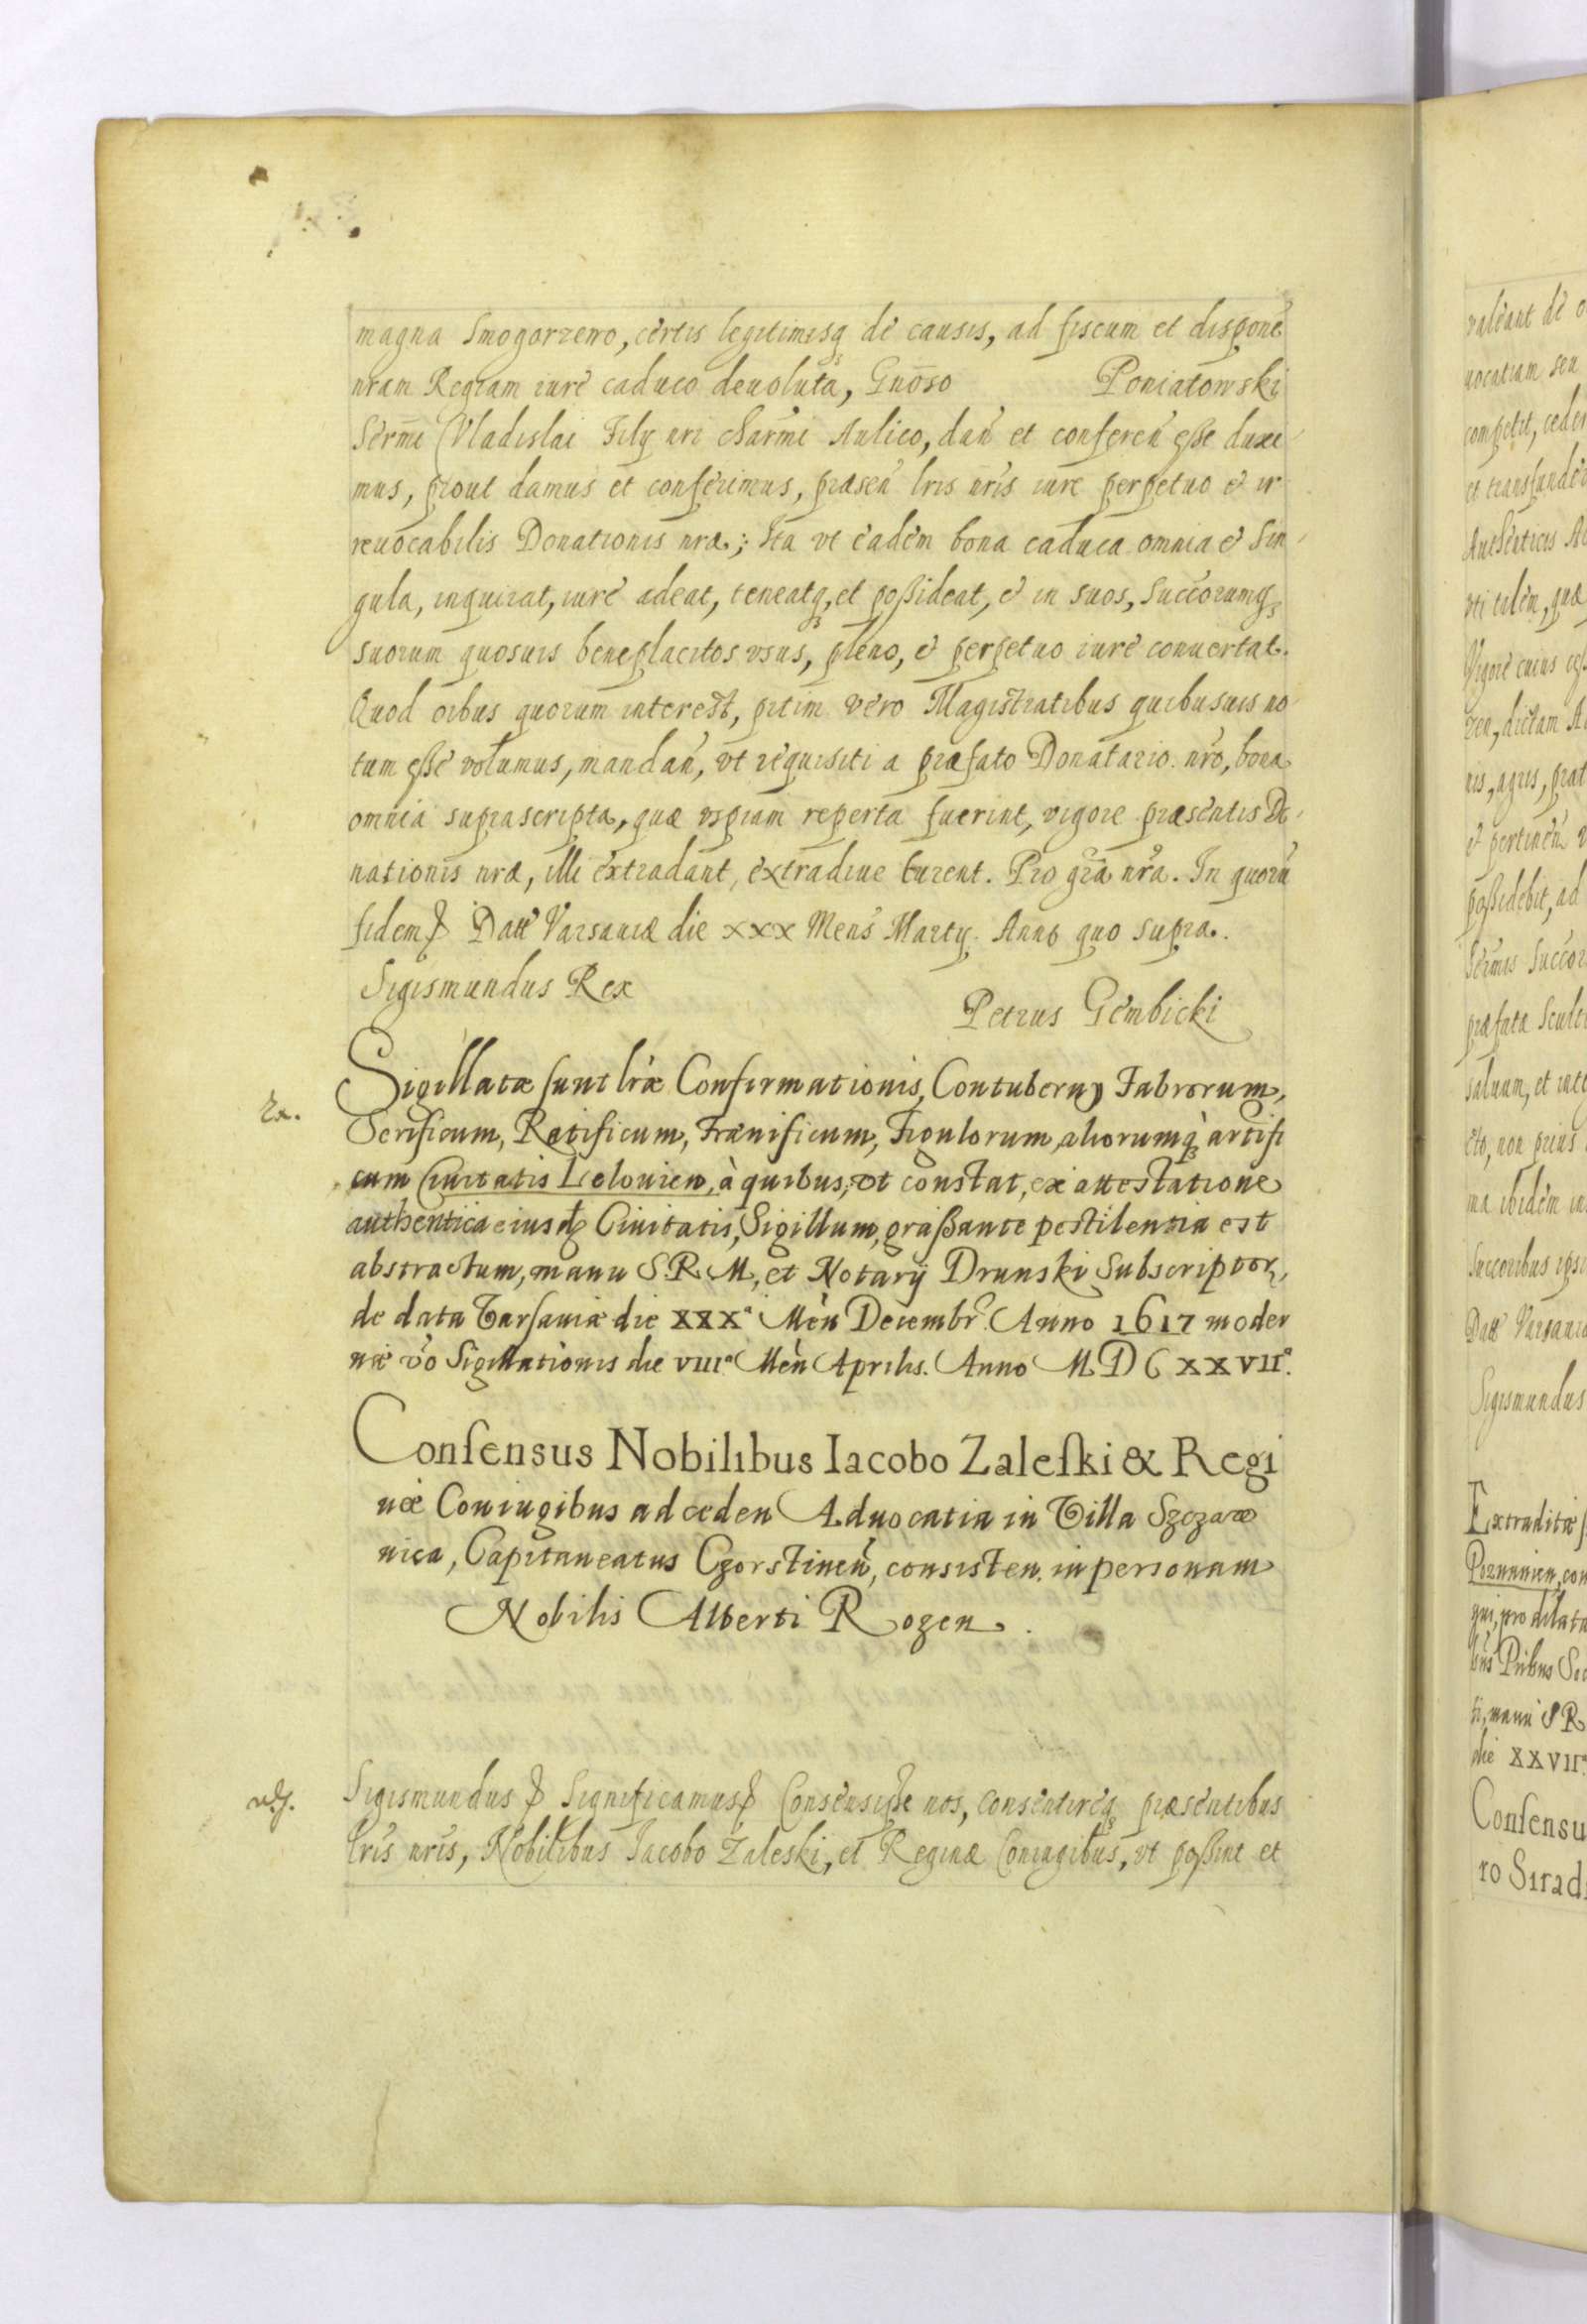 magna Smogorzewo, certis legitimisq́ de causis, ad fiscum et dispone
nram Regiam iure caduco devoluta, Gnoso Poniatowski
Serm̃i Vladislai Filÿ nri charm̃i Aulico, dan̄ et conferen̄ eße duxi
mus, prout damus et conferimus, præsen̄ lris nr̃is iure perpetuo & ir
reuocabilis Donationis nræ; Ita vt eadem bona caduca omnia & sin
gula, inquirat, iure adeat, teneatq́, et poßideat, & in suos, Succorumq́
suorum quosuis beneplacitos vsus, pleno, & perpetuo iure conuertat.
Quod oibus quorum interest, p̃tim vero Magistratibus quibusuis no
tum eße volumus, mandan̄, vt requisiti a præfato Donatario nro, bona
omnia suprascripta, quæ vspiam reperta fuerint, vigore præsentis Do
nationis nræ, illi extradant, extradiue curent. Pro gr̃a nr̃a. In quorū
fidem Datt Varsauiæ die XXX Mens Martÿ Anno quo supra.
Sigismundus Rex
Petrus Gembicki
Ex.
Sigillatæ sunt lr̃æ Confirmationis, Contubernÿ Fabrorum,
Serificum, Rotificum, Frænificum, Figulorum, aliorumq̀ artifi
cum Ciuitatis Lelouien, à quibus, vt constat, ex attestatione
authentica eiusd Ciuitatis, Sigillum, graßante pestilentia est
abstractum, manu S.R.M, et Notarÿ Drunski Subscriptor,
de data Varsauiæ die XXXª Men̄ Decembr Anno 1617 moder
næ v̄o Sigillationis die VIIIª Men̄ Aprilis. Anno M D C XXVIIº.
Consensus Nobilibus Iacobo Zaleski & Regi
næ Coniugibus ad ceden Aduocatia in Villa Szczaw
nica, Capitaneatus Czorstinen̄, consisten. in personam
Nobilis Alberti Rozen.
Sigismundus Significamus Consensiße nos, consentireq́ præsentibus
lr̃is nr̃is, Nobilibus Iacobo Zaleski, et Reginæ Coniugibus, vt poßint et
valeant de
uocatiam seu
competit, ceder
et transfunder
poßidebit, ad
præfatæ Scult
saluam, et
eto, non prius
ma ibidem in
Sigismundus
Extraditæ
Poznanien, con
die XXVIIª
Consensu
ro Sirad